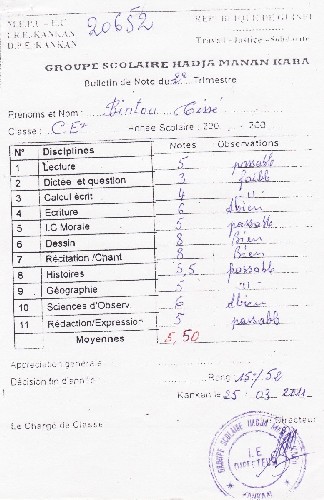 M.E.P.U - E.C
I.R.E / KANKAN
D.P.E / KANKAN
20652
REPUBLIQUE DE GUINEE
Travail - Justice - Solidarité
GROUPE SCOLAIRE HADJA MANAN KABA
Bulletin de Note du 2è Trimestre
Prénoms et Nom : Bintou Cisse
Classe : C.E2 Année Scolaire : 200 - 200
N° Disciplines Notes Observations
1 Lecture 5 passable
2 Dictée et question 3 faible
3 Calcul écrit 4 "
4 Ecriture 6 Abien
5 I.C Morale 5 passable
6 Dessin 8 Bien
7 Récitation /Chant 8 Bien
8 Histoires 5,5 passable
9 Géographie 5 "
10 Sciences d'Observ. 6 Abien
11 Rédaction/Expression 5 passable
Moyennes 5,50
Appréciation générale
Décision fin d'année Rang 15è/52
Kankan le 25 - 03 - 2011
Le Chargé de Classe Directeur
GROUPE SCOLAIRE HADJA
I.E
DIRECTEUR
KANKAN